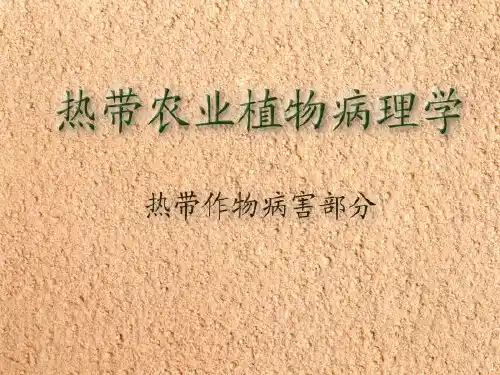 热带农业植物病理学
热带作物病害部分